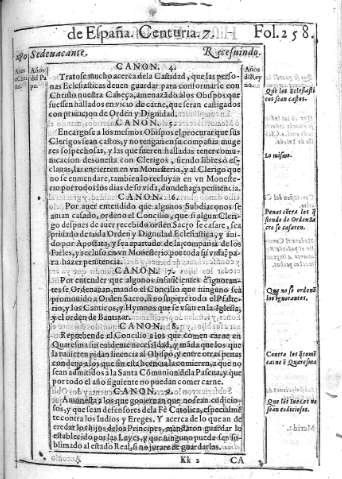 de España. Centuria. 7.
Fol. 258.
Sedeuacante.
Recesuindo.
CANON. 4.
Tratose mucho acerca de la Castidad, que las perso-
nas Eclesiasticas deuen guardar para conformarse con
Christo nuestra Cabeça, amenazādo a los Obispos, que
fuessen hallados en vicio de carne, que serán castigados
con priuacion de Orden y Dignidad.
CANON. 5.
Encargose a los mesmos Obispos el procurar que sus
Clerigos sean castos, y no tengan en su compañia muge
res sospechosas, y las que fueren halladas tener comu-
nicacion desonesta con Clerigos, siendo libres o es-
clauas, las encierren en vn Monesterio, y al Clerigo que
no se emendare, tambien lo recluyan en vn Moneste-
rio por todos los dias de su vida, donde haga penitencia.
CANON. 6.
Por auer entendido que algunos Subdiaconos se
auian casado, ordeno el Concilio, que si algun Cleri-
go despues de auer recebido orden Sacro se casare, sea
priuado de toda Orden y Dignidad Eclesiastica, y teni-
do por Apostata, y sea apartado de la compañia de los
Fieles, y recluso en vn Monesterio por toda su vida, pa-
ra hazer penitencia.
CANON. 7.
Por entender que algunos insuficientes e ignoran-
tes se Ordenauan, mando el Concilio que ninguno sea
promouido a Orden Sacro, si no supiere todo el Psalte-
rio, y los Canticos, y Hymnos que se vsan en la Iglesia,
y el orden de Bautizar.
CANON. 8.
Reprehende el Concilio a los que comen carne en
Quaresma sin euidente necessidad, y māda que los que
la tuuieren pidan licencia al Obispo, y entre otras penas
condena a los que sin esta licencia la comieren, a que no
sean admitidos a la Santa Comunion de la Pascua, y que
por todo el año siguiente no puedan comer carne.
CANON. 9.
Amonesta a los que gouiernan que no sean cudicio-
sos, y que sean defensores de la Fè Catolica, especialmē
te contra los Iudios y Ereges. Y acerca de lo que an de
eredar los hijos de los Principes, mandaron guardar lo
establecido por las Leyes, y que ninguno pueda ser su-
blimado al estado Real, si no jurare de guardarlas.
Que los Eclesiasti
cos sean castos.
Lo mismo.
Penas cōtra los q̃
siendo de Orden Sa
cro se casaren.
Que no se ordenē
los ignorantes.
Contra los q̃ comē
carne ē Quaresma
Que los Iuezes no
sean cudiciosos.
Kk 2
CA